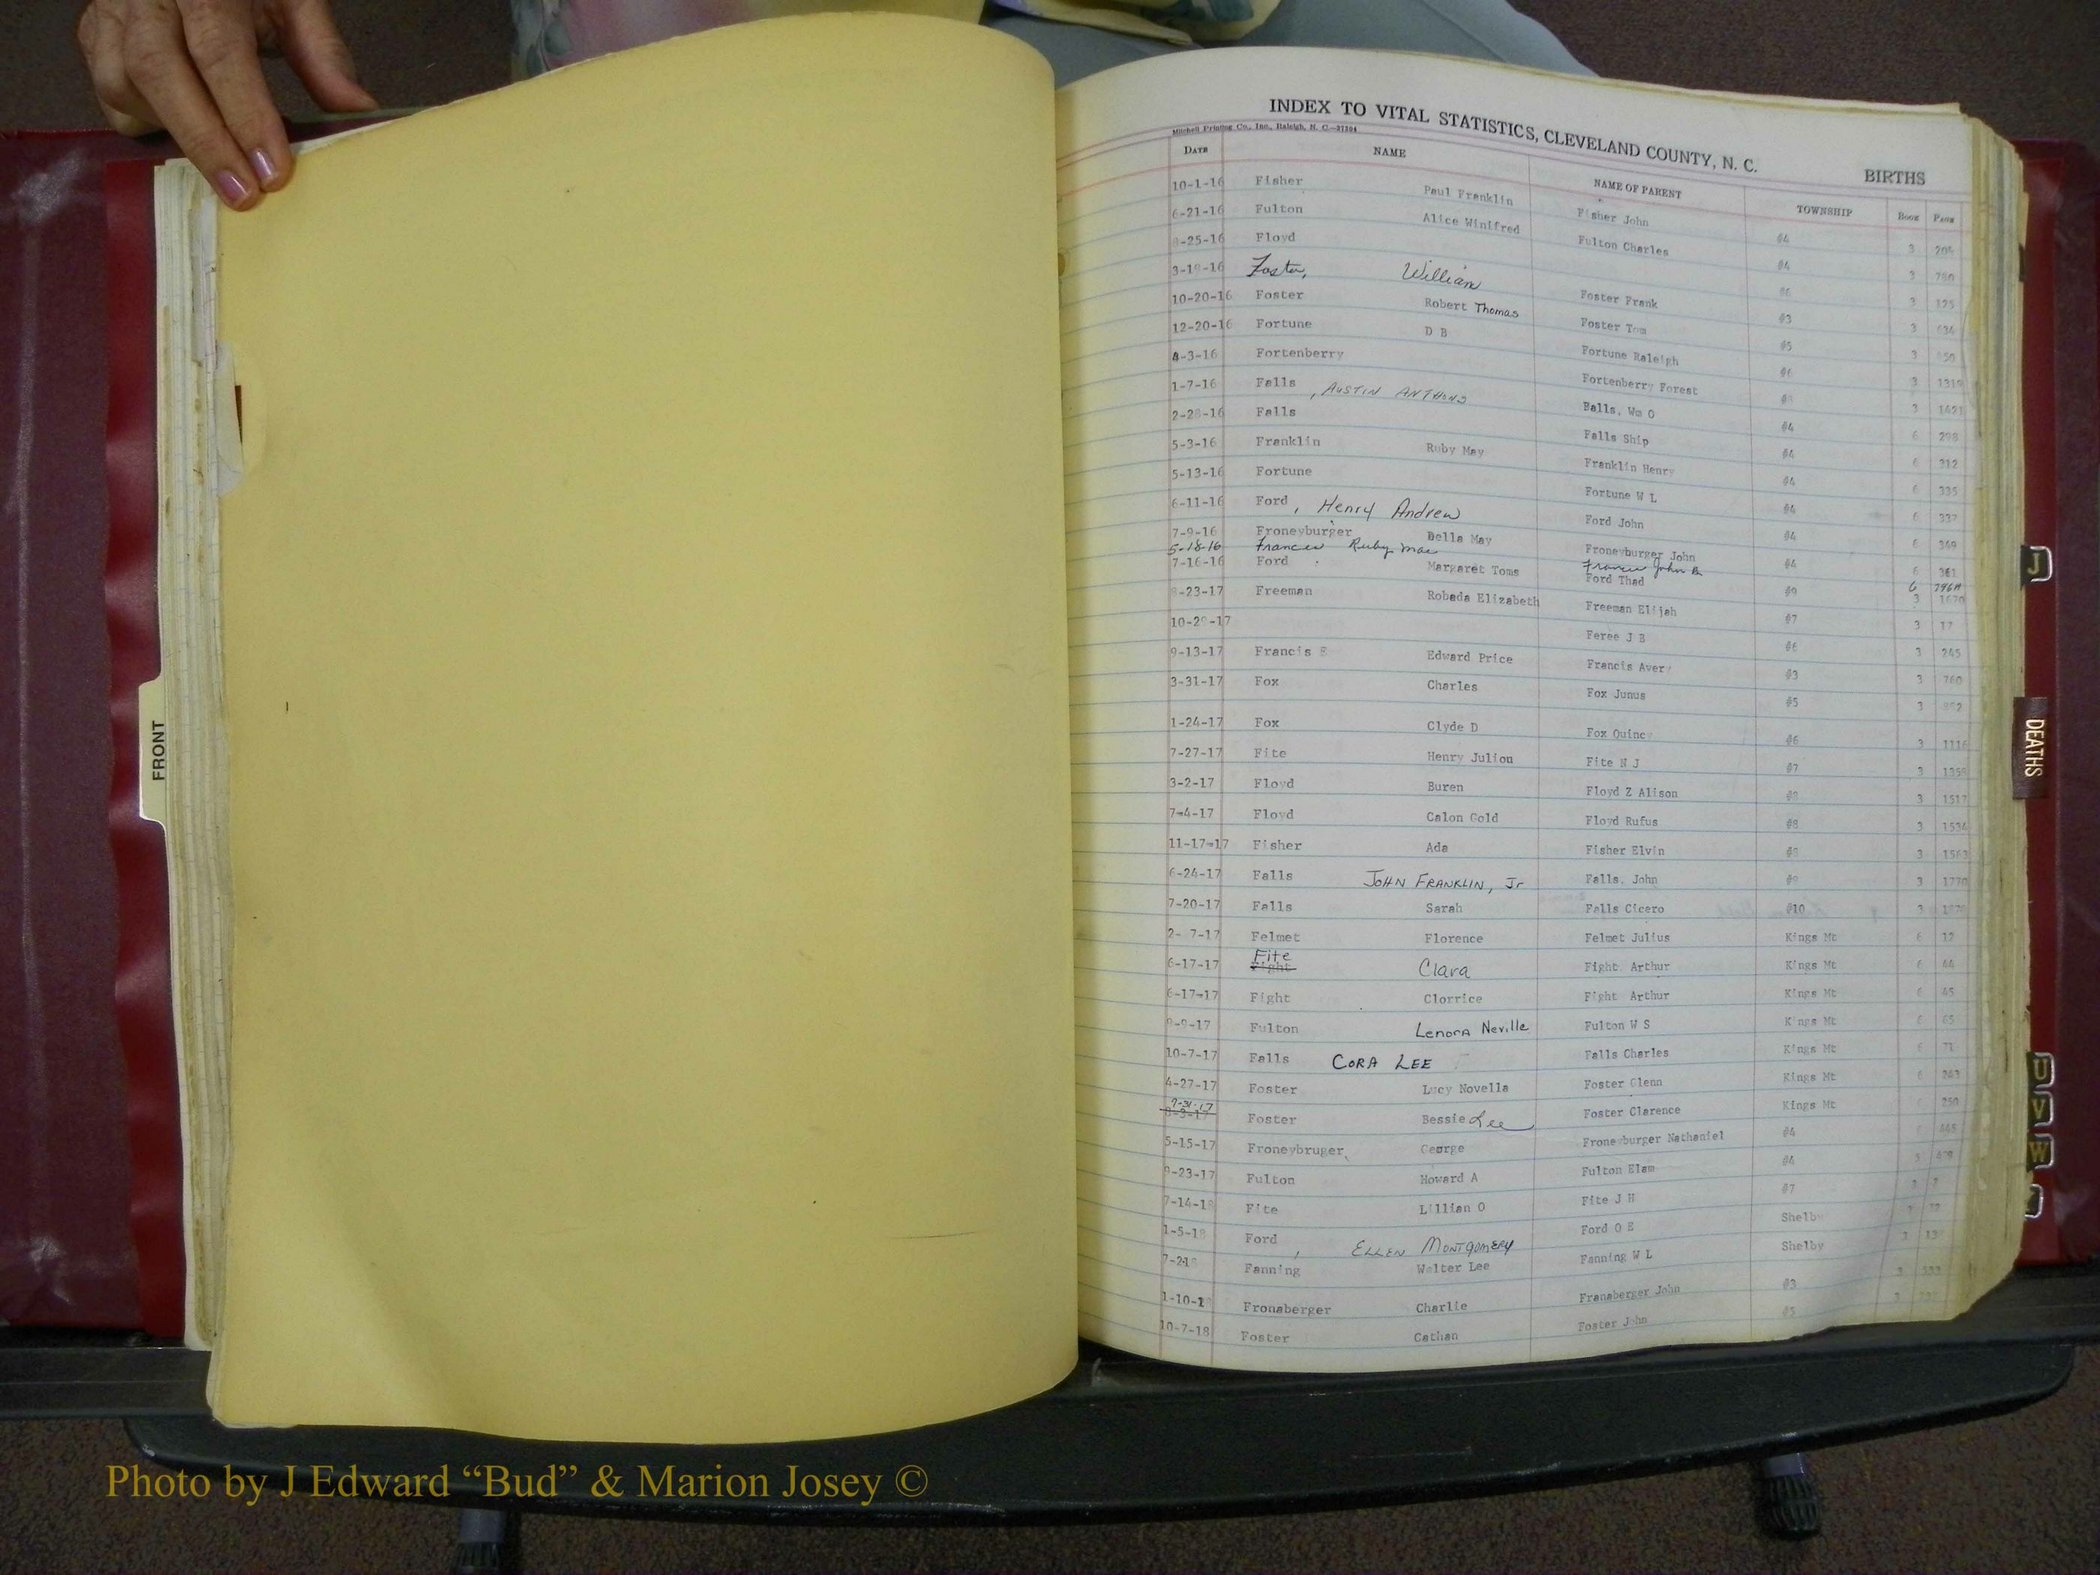 INDEX TO VITAL STATISTICS, CLEVELAND COUNTY, N. C. BIRTHS
Mitchell Printing Co., Inc., Raleigh, N. C.
DATE NAME NAME OF PARENT TOWNSHIP BOOK PAGE
10-1-16 Fisher Paul Franklin Fisher John #4 3
6-21-16 Fulton Alice Winifred Fulton Charles #4 3
-25-16 Floyd #6 3
3-18-16 Foster, William Foster Frank #3 3
10-20-16 Foster Robert Thomas Foster Tom #5 3
12-20-16 Fortune D B Fortune Raleigh #6 3 1319
8-3-16 Fortenberry Fortenberry Forest #8 3 1421
1-7-16 Falls, AUSTIN ANTHONY Falls, Wm O #4 6
2-28-16 Falls Falls Ship #4 6 312
5-3-16 Franklin Ruby May Franklin Henry #4 6 335
5-13-16 Fortune Fortune W L #4 6 337
6-11-16 Ford, Henry Andrew Ford John #4 6 349
7-9-16 Froneyburger Della May Froneyburger John #4 6 361
5-18-16 Frances Ruby Mae Frances John B. 6
7-16-16 Ford Margaret Toms Ford Thad #9 3 1670
-23-17 Freeman Robeda Elizabeth Freeman Elijah #7 3 17
10-28-17 Feree J B #6 3 245
9-13-17 Francis E Edward Price Francis Avery #3 3 760
3-31-17 Fox Charles Fox Junus #5 3
1-24-17 Fox Clyde D Fox Quincy #6 3 1116
7-27-17 Fite Henry Julion Fite N J #7 3 1358
3-2-17 Floyd Buren Floyd Z Alison #8 3 1517
7-4-17 Floyd Calon Gold Floyd Rufus #8 3 1534
11-17-17 Fisher Ada Fisher Elvin 3 1563
6-24-17 Falls JOHN FRANKLIN, Jr Falls, John #9 3 1770
7-20-17 Falls Sarah Falls Cicero #10 3
2- 7-17 Felmet Florence Felmet Julius Kings Mt 6 12
6-17-17 Fite Fight Clara Fight Arthur Kings Mt 6 44
6-17-17 Fight Clorrice Fight Arthur Kings Mt 6 45
9-9-17 Fulton Lenora Neville Fulton W S Kings Mt 6 65
10-7-17 Falls CORA LEE Falls Charles Kings Mt 6 71
4-27-17 Foster Lucy Novella Foster Glenn Kings Mt 6 243
7-31-17 8-3-17 Foster Bessie Lee Foster Clarence Kings Mt 250
5-15-17 Froneybruger George Froneyburger Nathaniel #4
9-23-17 Fulton Howard A Fulton Elam #4
7-14-18 Fite Lillian O Fite J H #7
1-5-18 Ford, ELLEN MONTGOMERY Ford O E Shelby
7-218 Fanning Walter Lee Fanning W L Shelby
1-10-18 Fronaberger Charlie Franaberger John #3
10-7-18 Foster Cathan Foster John #5
FRONT
J
DEATHS
U
V
W
Photo by J Edward “Bud” & Marion Josey ©